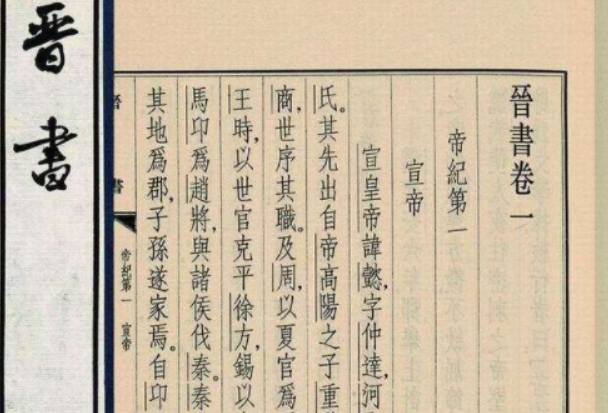 晉書卷一
帝紀第一
宣帝
宣皇帝諱懿，字仲達，河
氏。其先出自帝高陽之子重
商，世序其職。及周，以夏官爲
王時，以世官克平徐方，錫以
馬卬爲趙將，與諸侯伐秦。秦
其地爲郡，子孫遂家焉。自卬
晉書
帝紀第一 宣帝
晋书